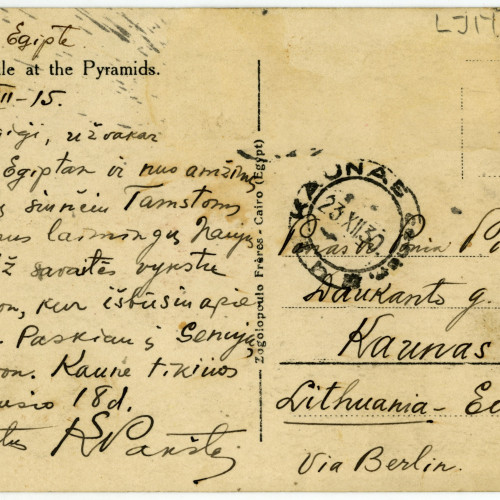 Egipte
le at the Pyramids.
II-15.
užvakar
Egiptan ir nuo amžinų
siunčiu Tamstoms
laimingų Naujų
Už savaitės vykstu
on, kur išbusiu apie
Paskiau į Seniąją
on. Kaune tikiuos
18 d.
Zogolopoulo Frères - Cairo (Egypt)
LJM
KAUNAS
23 XII 35
Ponas ir Ponia P
Daukanto g.
Kaunas
Lithuania - Eu
Via Berlin.